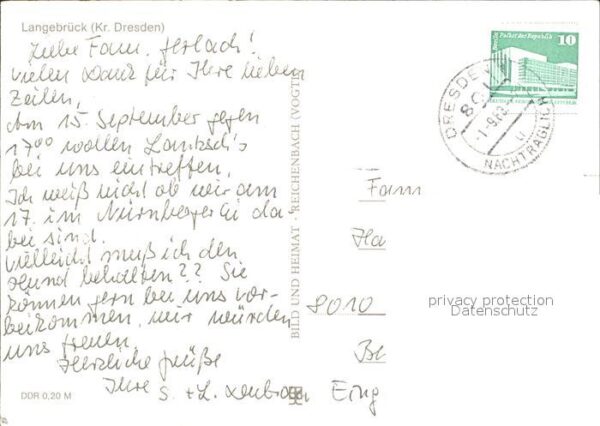 Langebrück (Kr. Dresden)
Liebe Fam. Gerlach!
vielen Dank für Ihre lieben
Zeilen,
Am 15. September gegen
17⁰⁰ wollen Lantzsch's
bei uns eintreffen.
Ich weiß nicht ob wir am
17. im Nürnberger Ei da
bei sind.
vielleicht muß ich den
Hund behalten?? Sie
können gern bei uns vor-
beikommen, wir würden
uns freuen.
Herzliche Grüße
Ihre S. + L.
DDR 0,20 M
BILD UND HEIMAT · REICHENBACH (VOGTL
Palast der Republik
10
DRESDEN
801
NACHTRÄGLICH
Fam
Ha
8010
Bl
Eing
privacy protection
Datenschutz